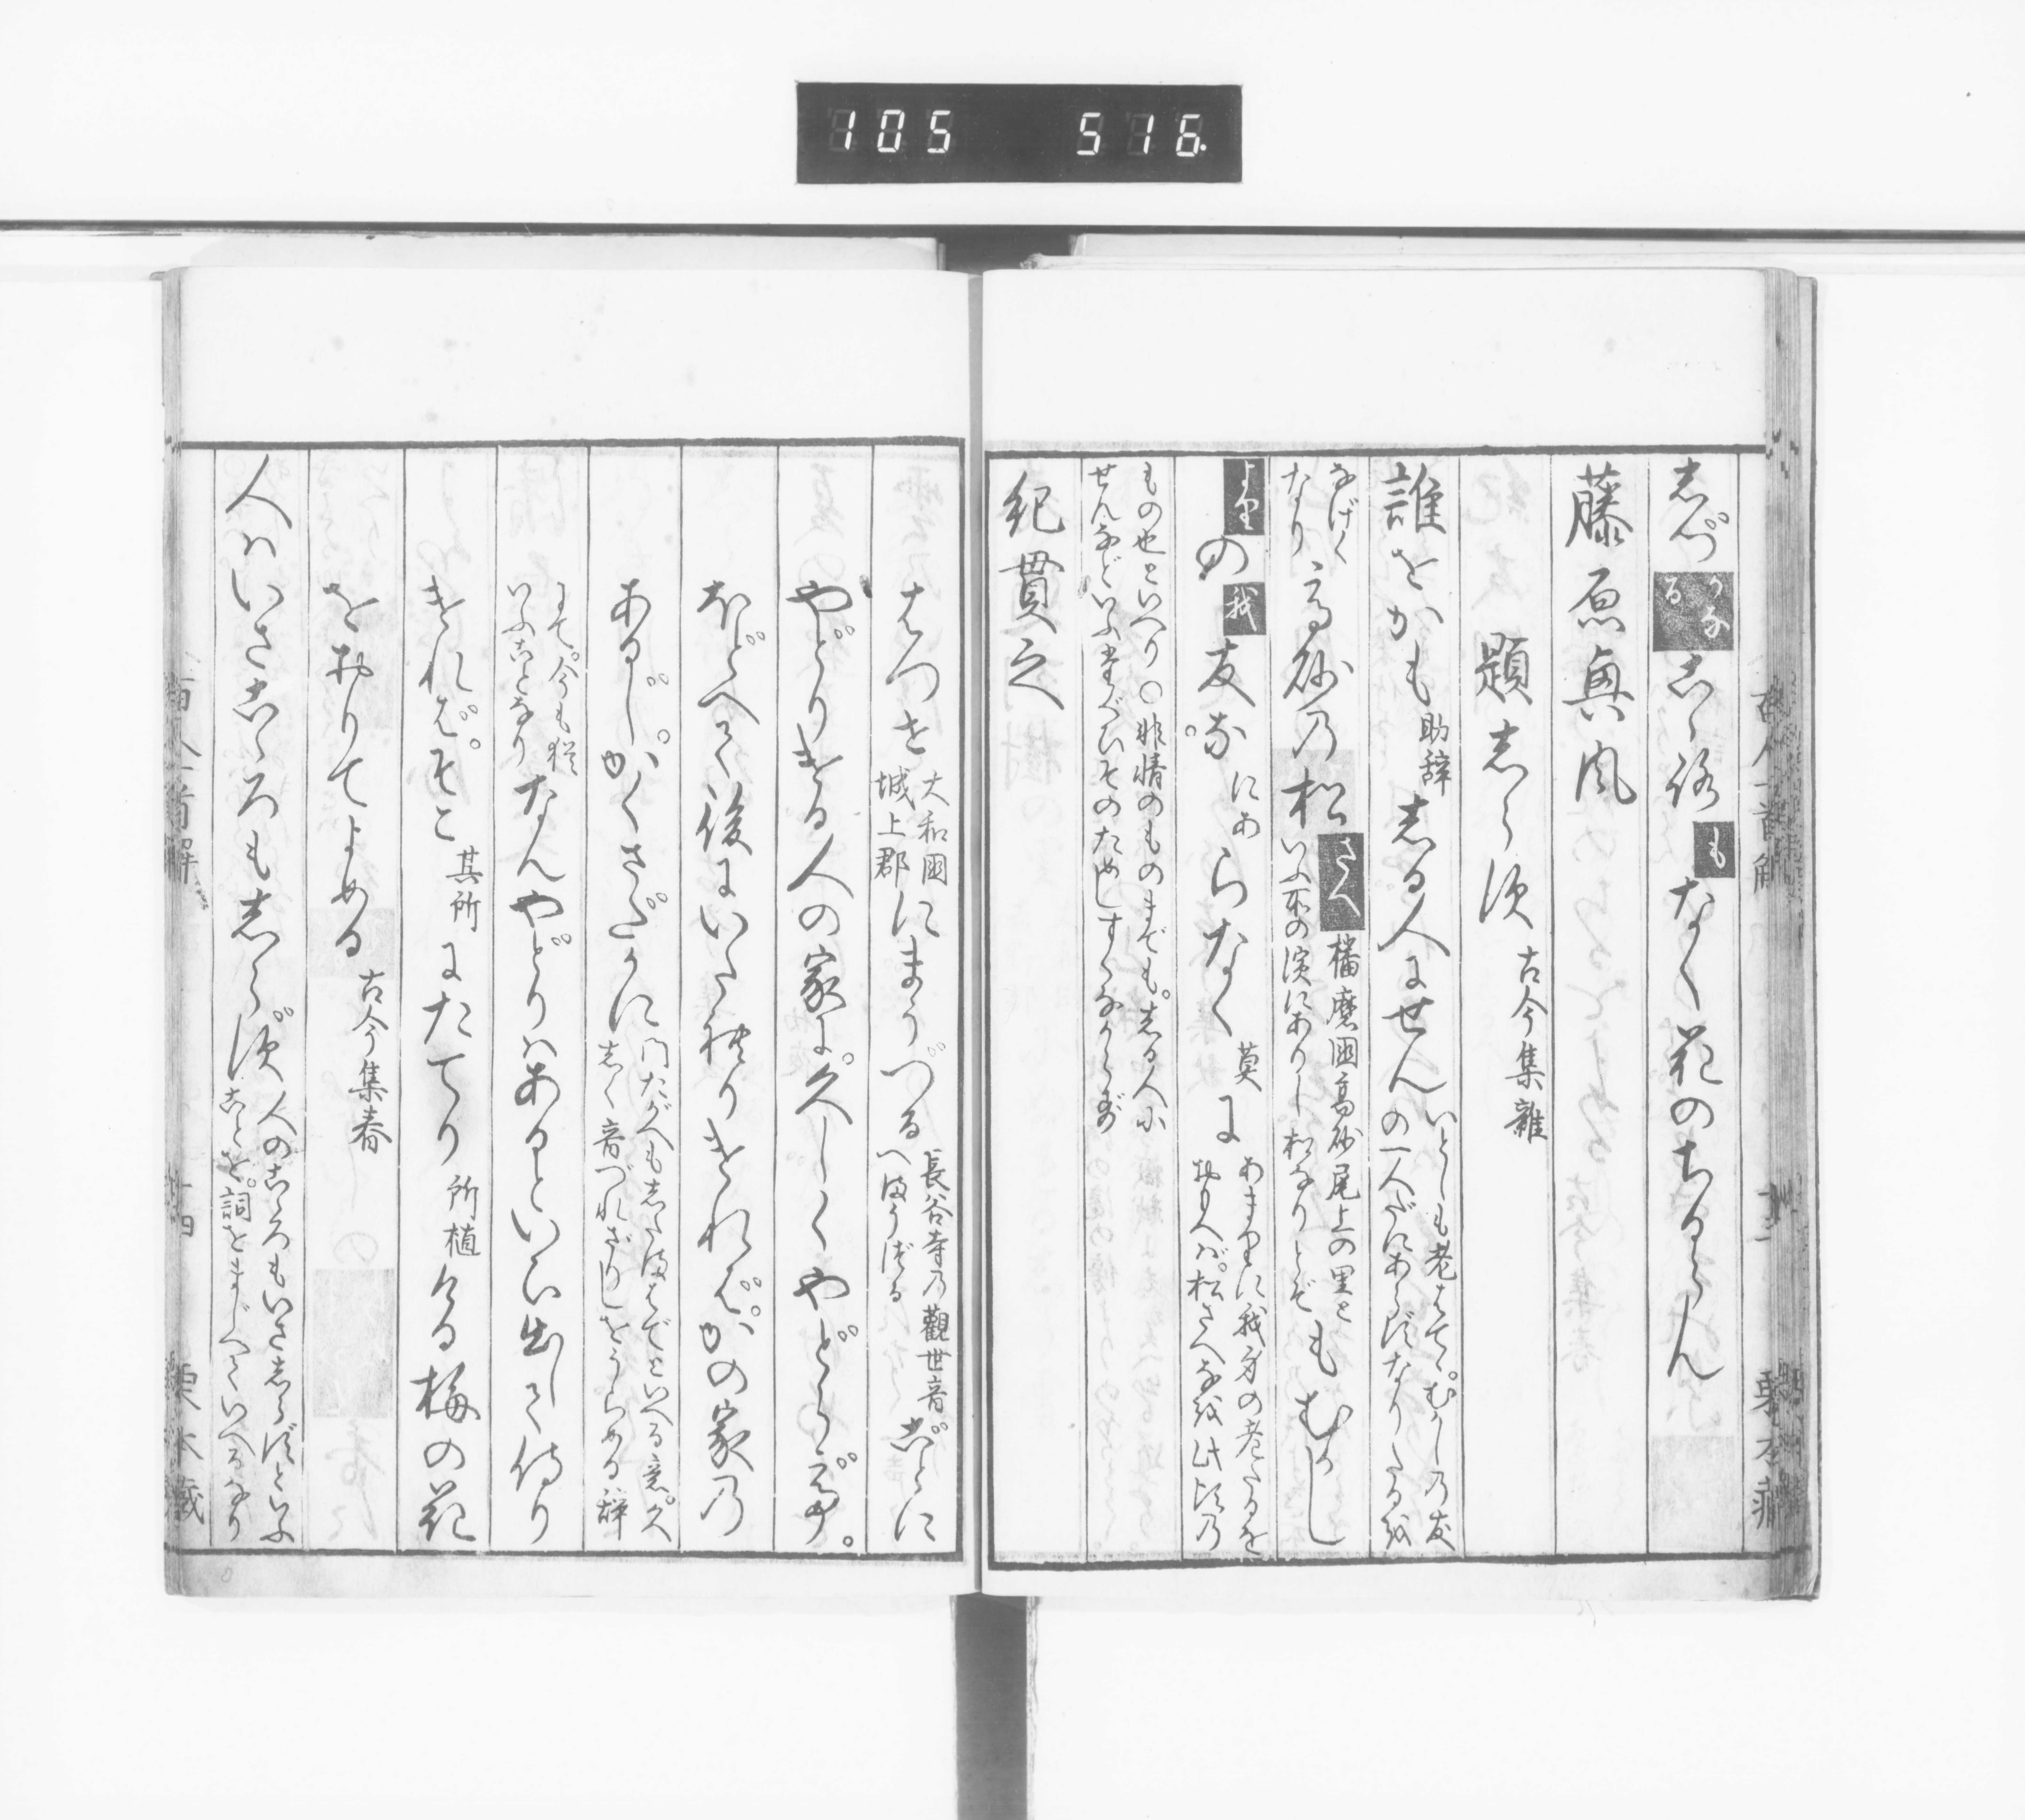 105 516
志づ かなる こゝろ も なく花のちるらん
藤原興風
題志らず 古今集雑
誰をかも 助辞 志る人にせん いとしも老はてゝ。むかしの友
の一人だにあらずなりたるを
なげく
なり
高砂乃松 さへ 播磨国高砂尾上の里と
いふ所の濱にありし松なりとぞ
もむかし
より の 我 友な にあ らなく 莫 に あまりに我身の老たるを
おもへば。松さへなを此比乃
ものせといへり○非情のものまでも。志る人に
せんなどいふ
そのためしすくなからず
紀貫之
はつせ 大和國
城上郡
にまうづる 長谷寺乃觀世音
へまうづる
ごとに
やどりける人の家に。久しくやどらで。
ほどへて後にいたれりければ。かの家乃
あるじ。かくさだかに 門たがへも志たまはでといへる意。久
志く音づれざりしをうらめる辞
にて。今も猶
いふことなり
なんやどりはあるといひ出して侍り
ければ。そこ 其所 にたてり 所植 ける梅の花
をおりてよめる 古今集春
人はいさこゝろも志らず 人のこゝろもいさ志らずといふ
ことを。詞をまじへていへるなり
百人一首解
十四